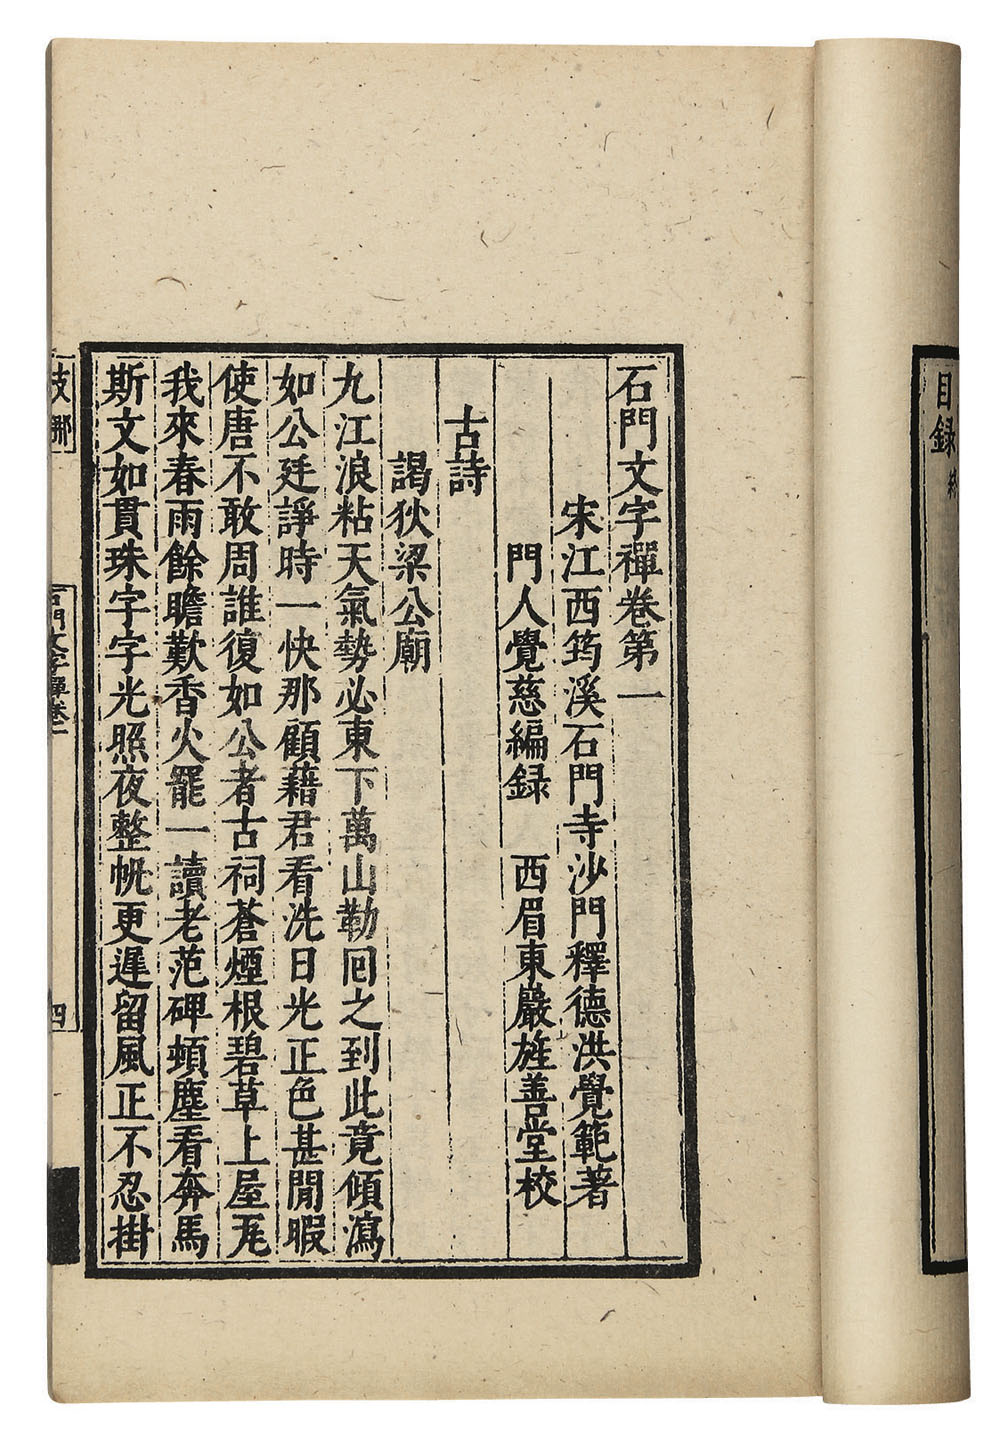 目録
終
石門文字禪卷第一
宋江西筠溪石門寺沙門釋德洪覺範著
門人覺慈編録　西眉東巖旌善堂校
古詩
謁狄梁公廟
九江浪粘天氣勢必東下萬山勒囘之到此竟傾瀉
如公廷諍時一快那顧藉君看洗日光正色甚閒暇
使唐不敢周誰復如公者古祠蒼煙根碧草上屋瓦
我來春雨餘瞻歎香火罷一讀老范碑頓塵看奔馬
斯文如貫珠字字光照夜整帆更遲留風正不忍掛
支那
石門文字禪卷一
四